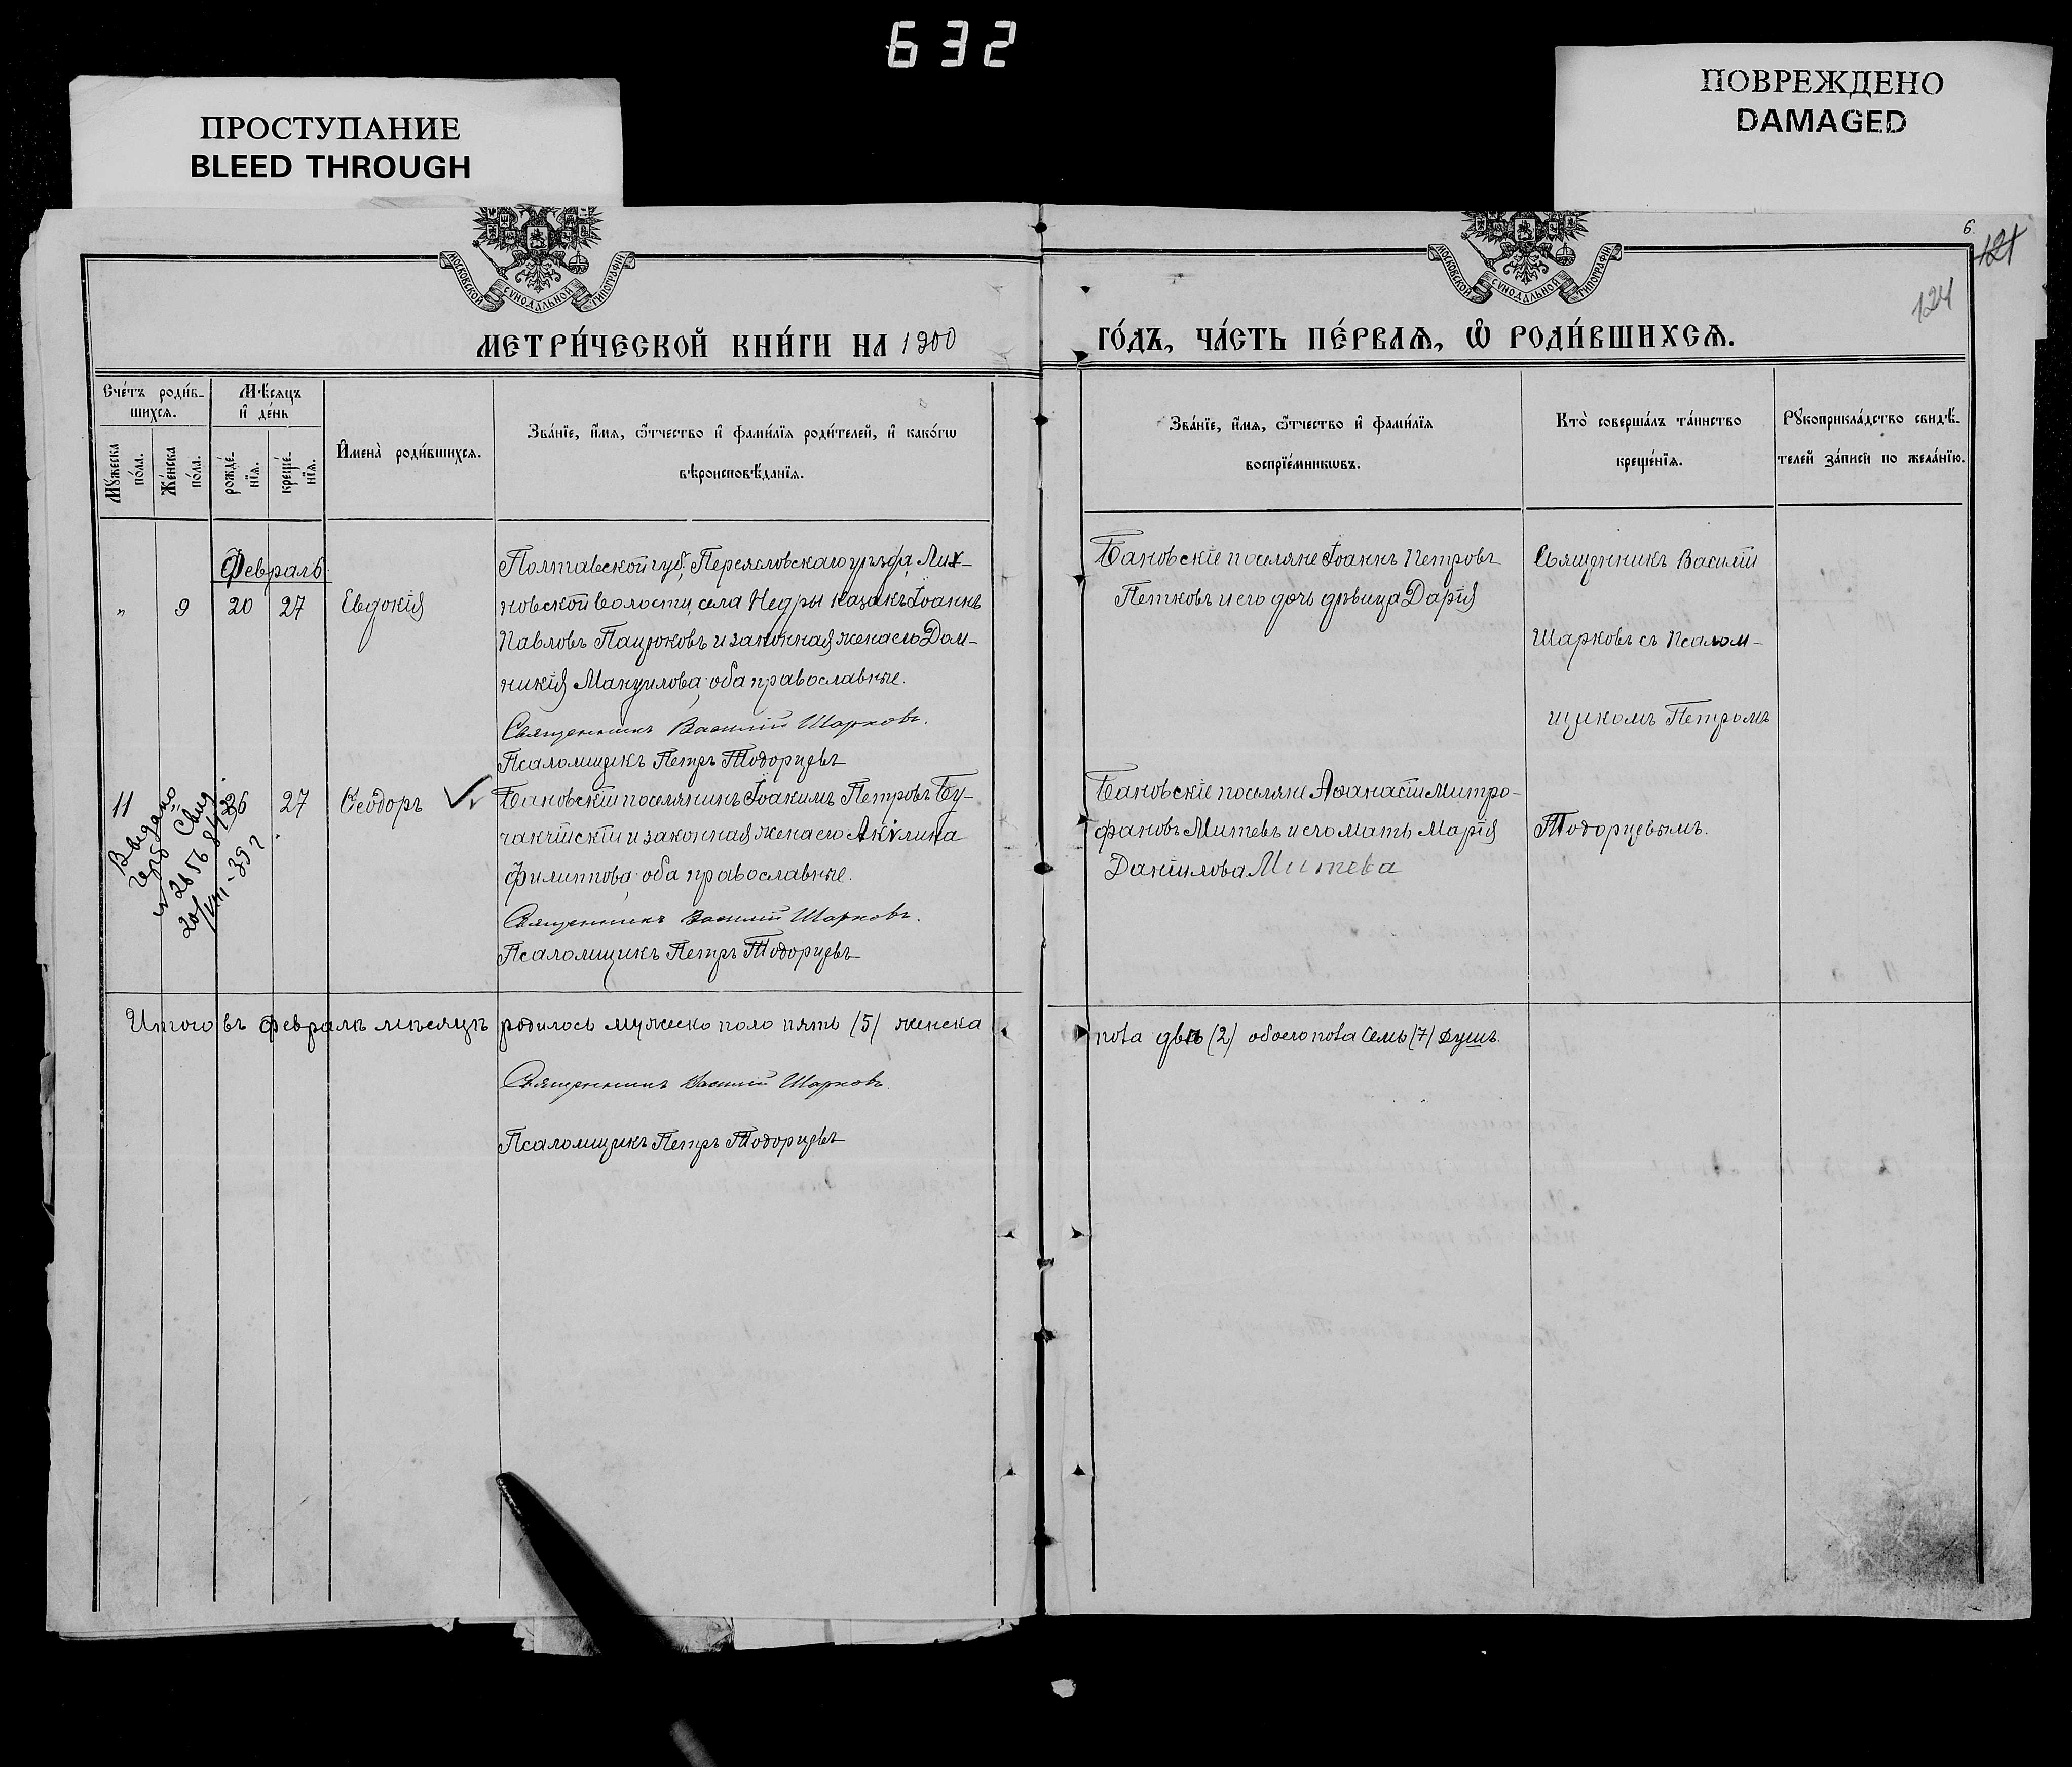 632
ПРОСТУПАНИЕ
BLEED THROUGH
ПОВРЕЖДЕНО
DAMAGED
МОСКОВСКОЙ СѴНОДАЛЬНОЙ ТИПОГРАФІИ
МОСКОВСКОЙ СѴНОДАЛЬНОЙ ТИПОГРАФІИ
6.
121
124
МЕТРИ́ЧЕСКОЙ КНИ́ГИ НА 1900
ГО́ДЪ, ЧА́СТЬ ПЕ́РВАѦ, Ѡ҆ РОДИ́ВШИХСѦ.
Сче́тъ роди́в-
шихсѧ.
Мѣ́сѧцъ
и҆ де́нь
Мꙋ́жеска
по́ла.
Же́нска
по́ла.
рожде́-
нїѧ.
креще́-
нїѧ.
И҆мена̀ роди́вшихсѧ.
Зва́нїе, и҆́мѧ, ѻ҆́тчество и҆ фами́лїѧ роди́телей, и҆ како́гѡ
вѣроисповѣ́данїѧ.
Зва́нїе, и҆́мѧ, ѻ҆́тчество и҆ фами́лїѧ
воспрїе́мникѡвъ.
Кто̀ соверша́лъ та́инство
креще́нїѧ.
Рꙋкоприкла́дство свидѣ́-
телей за́писи по жела́нїю.
Февраль
„ 9 20 27 Евдокія
Полтавской губ., Переясловскаго уѣзда, Лих-
новской волости, села Недры казакъ Іоаннъ
Павловъ Пацюковъ и законная жена его Дом-
никія Мануилова; оба православные.
Священникъ Василій Шарковъ.
Псаломщикъ Петръ Тодорцевъ
Бановскіе поселяне Іоаннъ Петровъ
Петковъ и его дочь дѣвица Дарія
Священникъ Василій
Шарковъ съ Псалом-
щикомъ Петромъ
Тодорцевымъ.
11 26 27 Ѳеодоръ
Выдано
Свид.
Бановскій поселянинъ Іоакимъ Петровъ Бу-
чакчійскій и законная жена его Акѵлина
Филиппова; оба православные.
Священникъ Василій Шарковъ.
Псаломщикъ Петръ Тодорцевъ
Бановскіе поселяне Аѳанасій Митро-
фановъ Митевъ и его мать Марія
Даніилова Митева
Итого въ Февралѣ мѣсяцѣ родилось мужеско поло пять (5) женска
пола двѣ (2) обоего пола семь (7) душъ.
Священникъ Василій Шарковъ.
Псаломщикъ Петръ Тодорцевъ